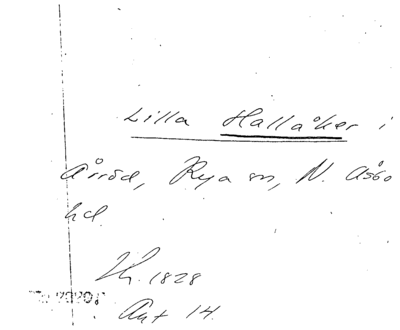 Lilla Hallåker i
Årröd, Rya sn, N. Åsbo
hd.
1828
Akt 14.